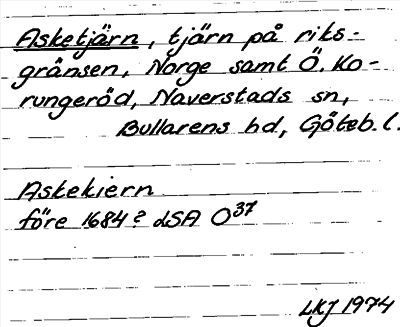 Asketjärn, tjärn på riks-
gränsen, Norge samt Ö. Ko-
rungeröd, Naverstads sn,
Bullarens hd, Göteb. l.
Askekiern
före 1684? LSA O37
LKJ 1974